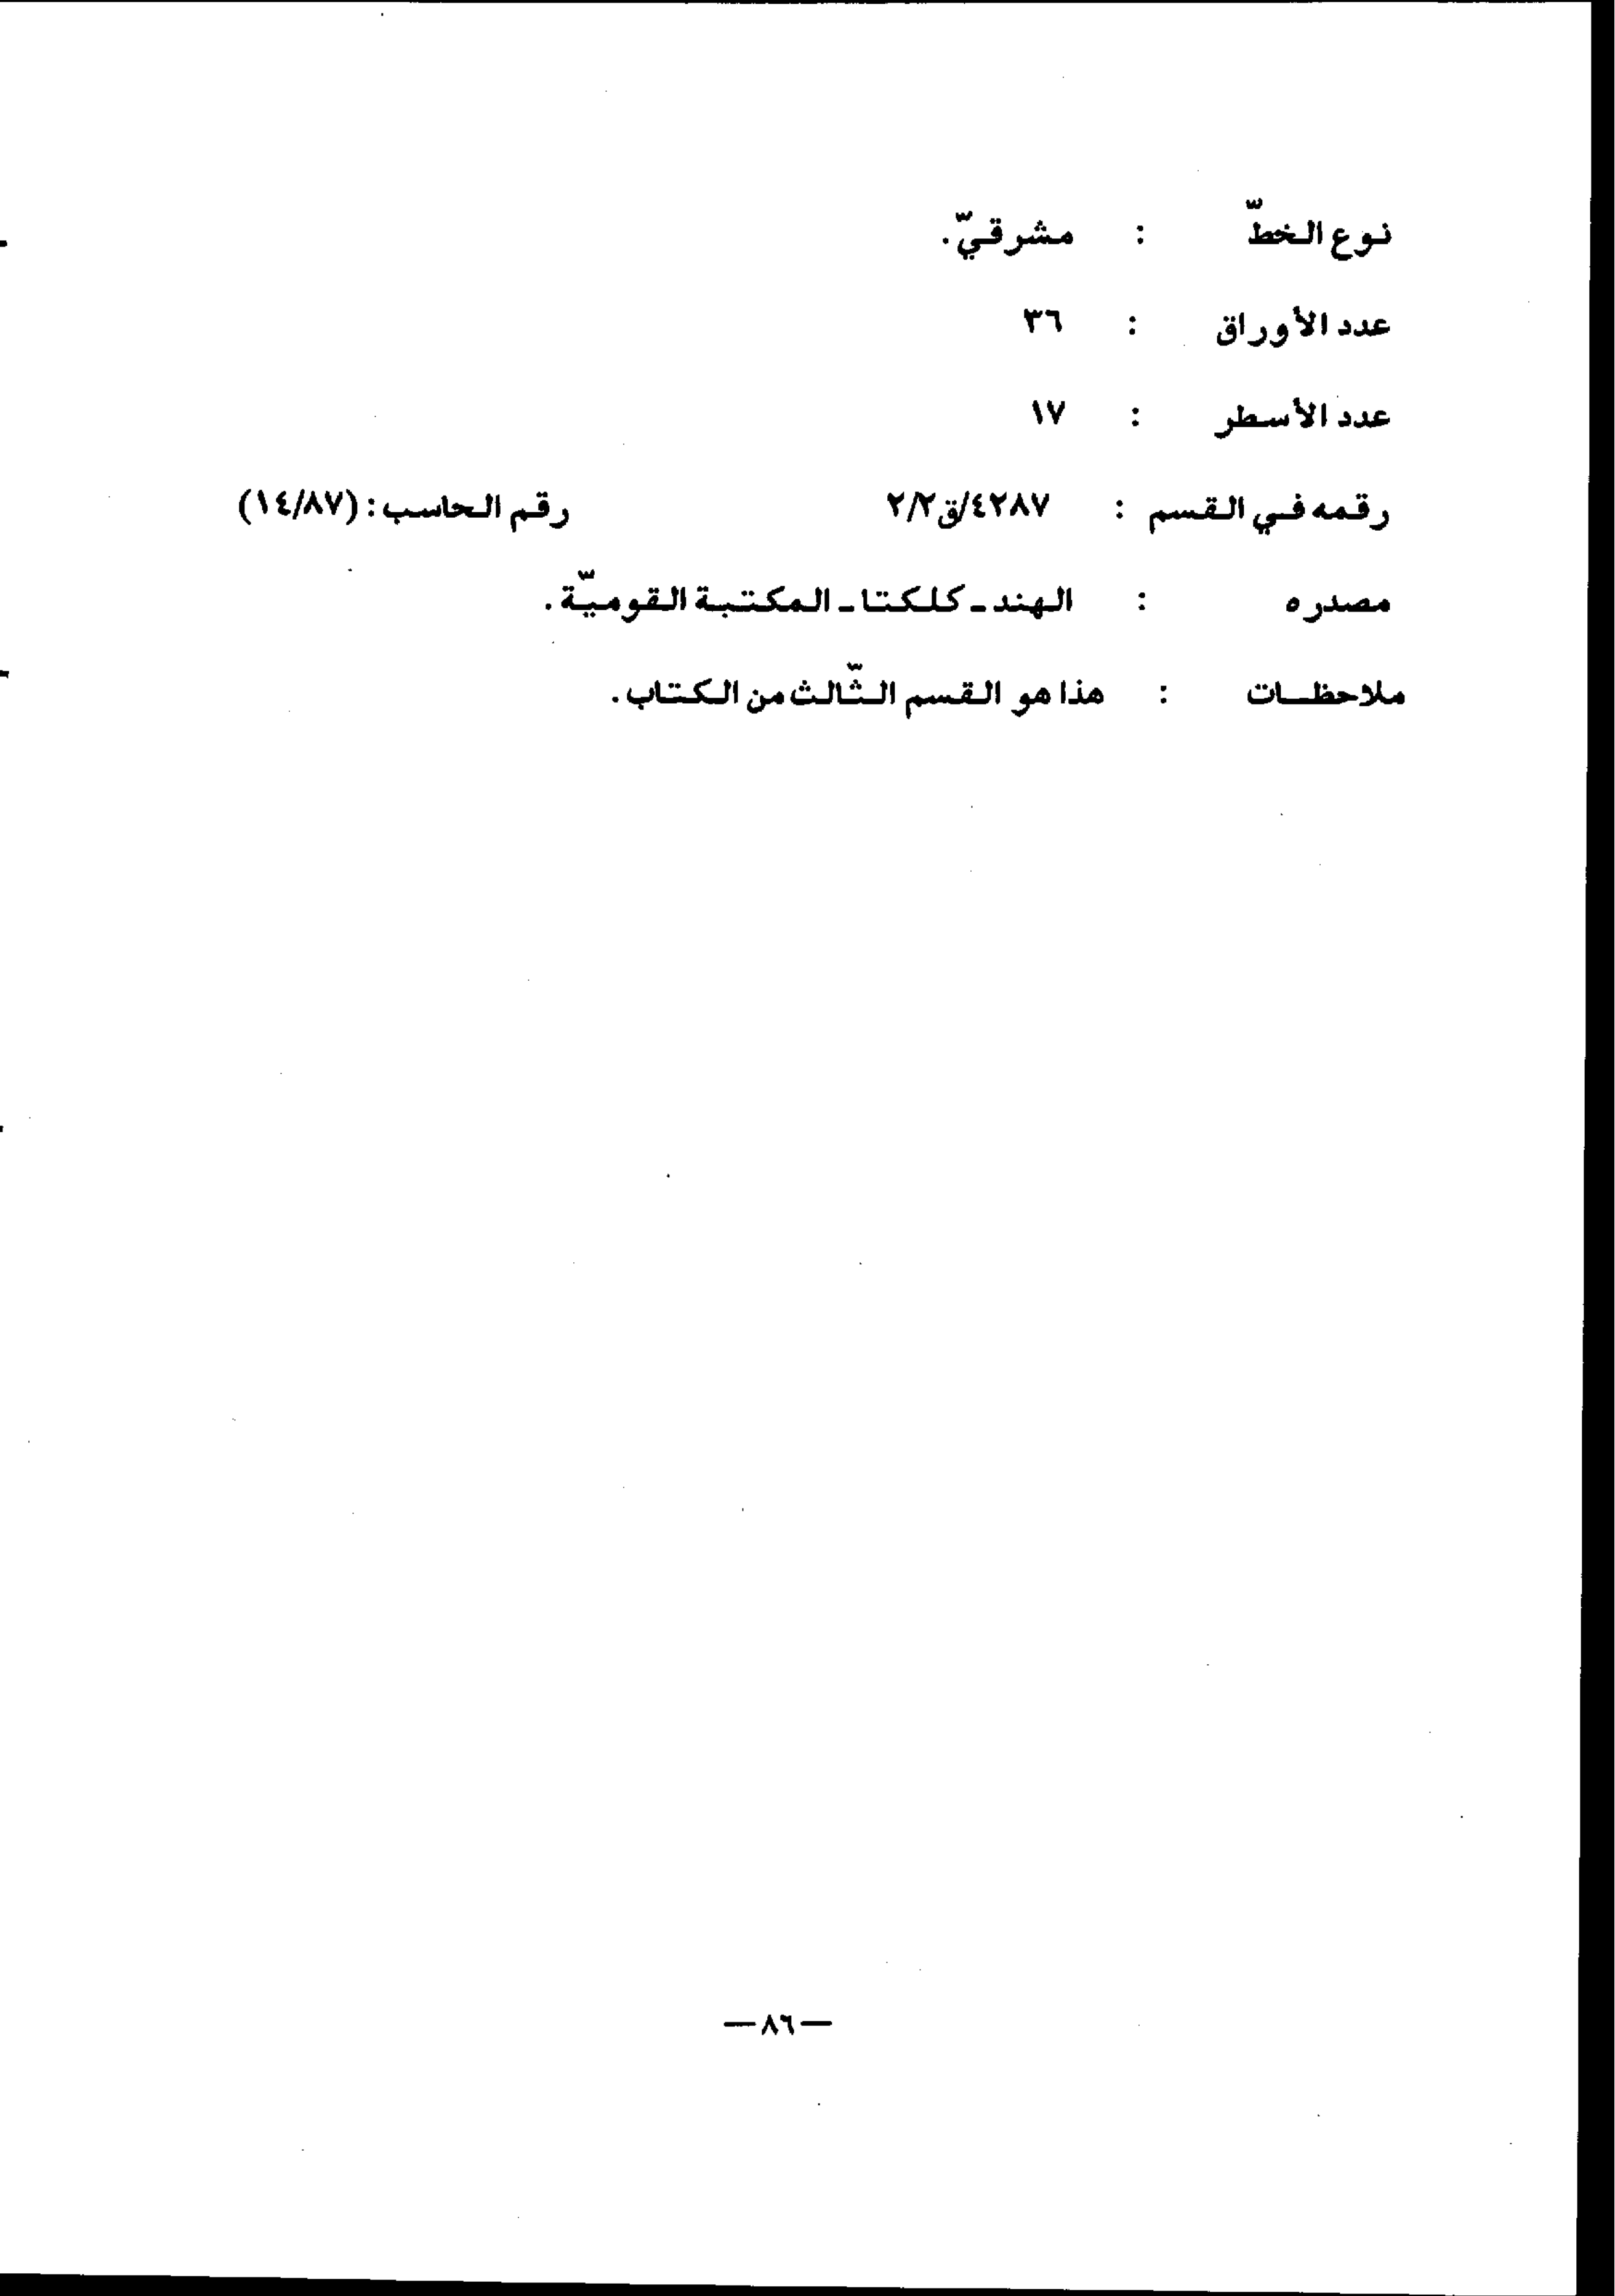 نوع الخطّ : مشرقيّ.
عدد الأوراق : ٣٦
عدد الأسطر : ١٧
رقمه في القسم : ٤٢٨٧/ق٢/٢ رقم الحاسب: (١٤/٨٧)
مصدره : الهند ـ كلكتا ـ المكتبة القوميّة.
ملاحظــات : هذا هو القسم الثّالث من الكتاب.
— ٨٦ —